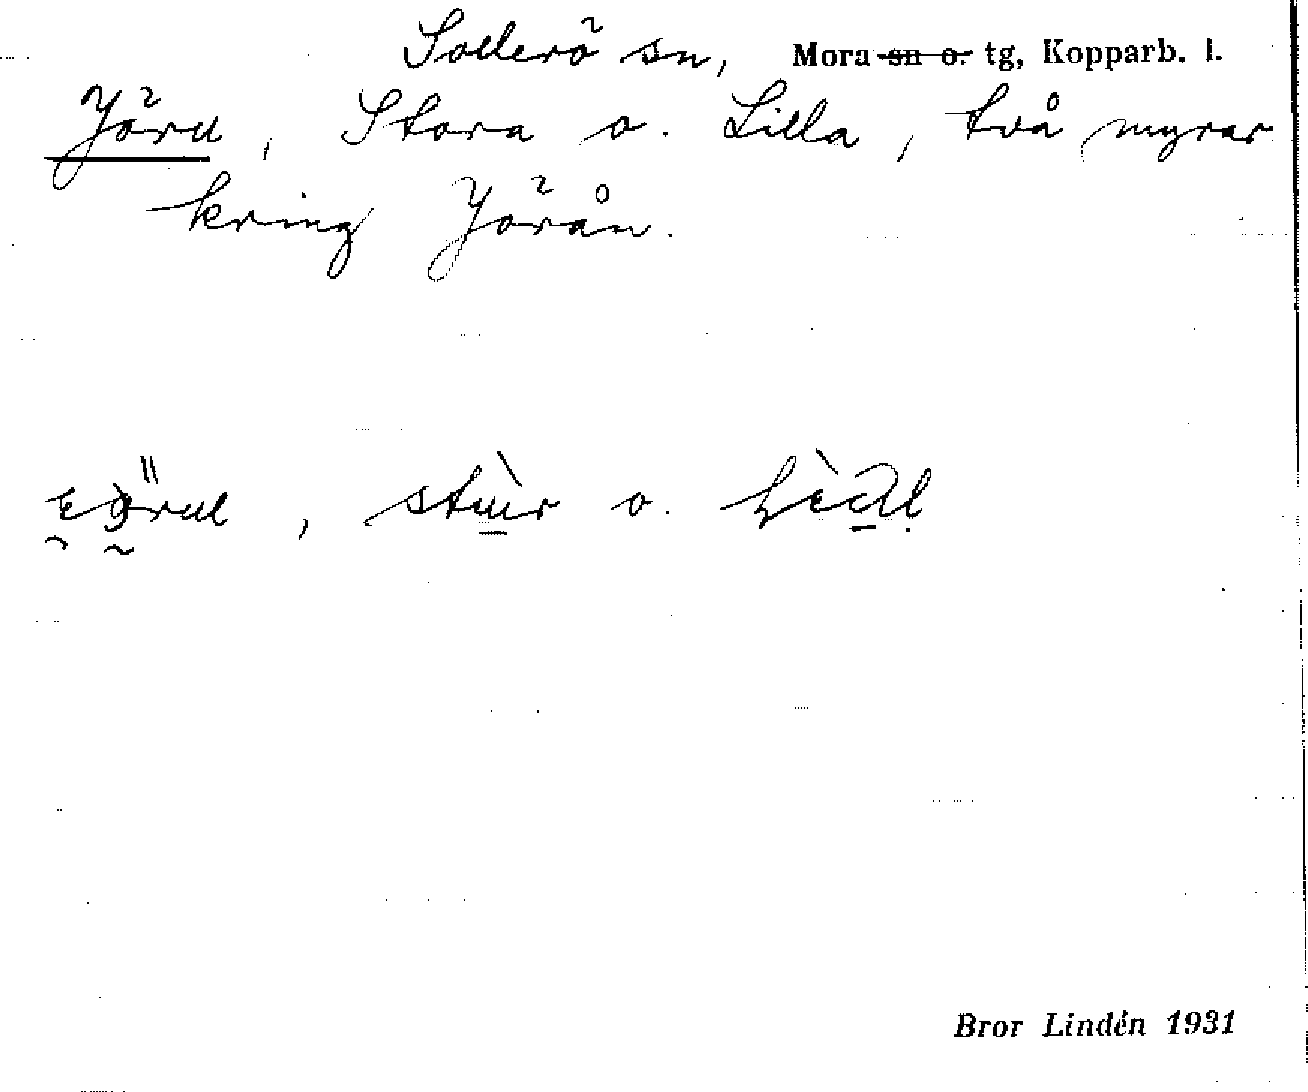 Sollerö sn, Mora sn o. tg, Kopparb. l.
Jöru, Stora o. Lilla, två myrar
kring Jörån.
stùr o.
Bror Lindén 1931